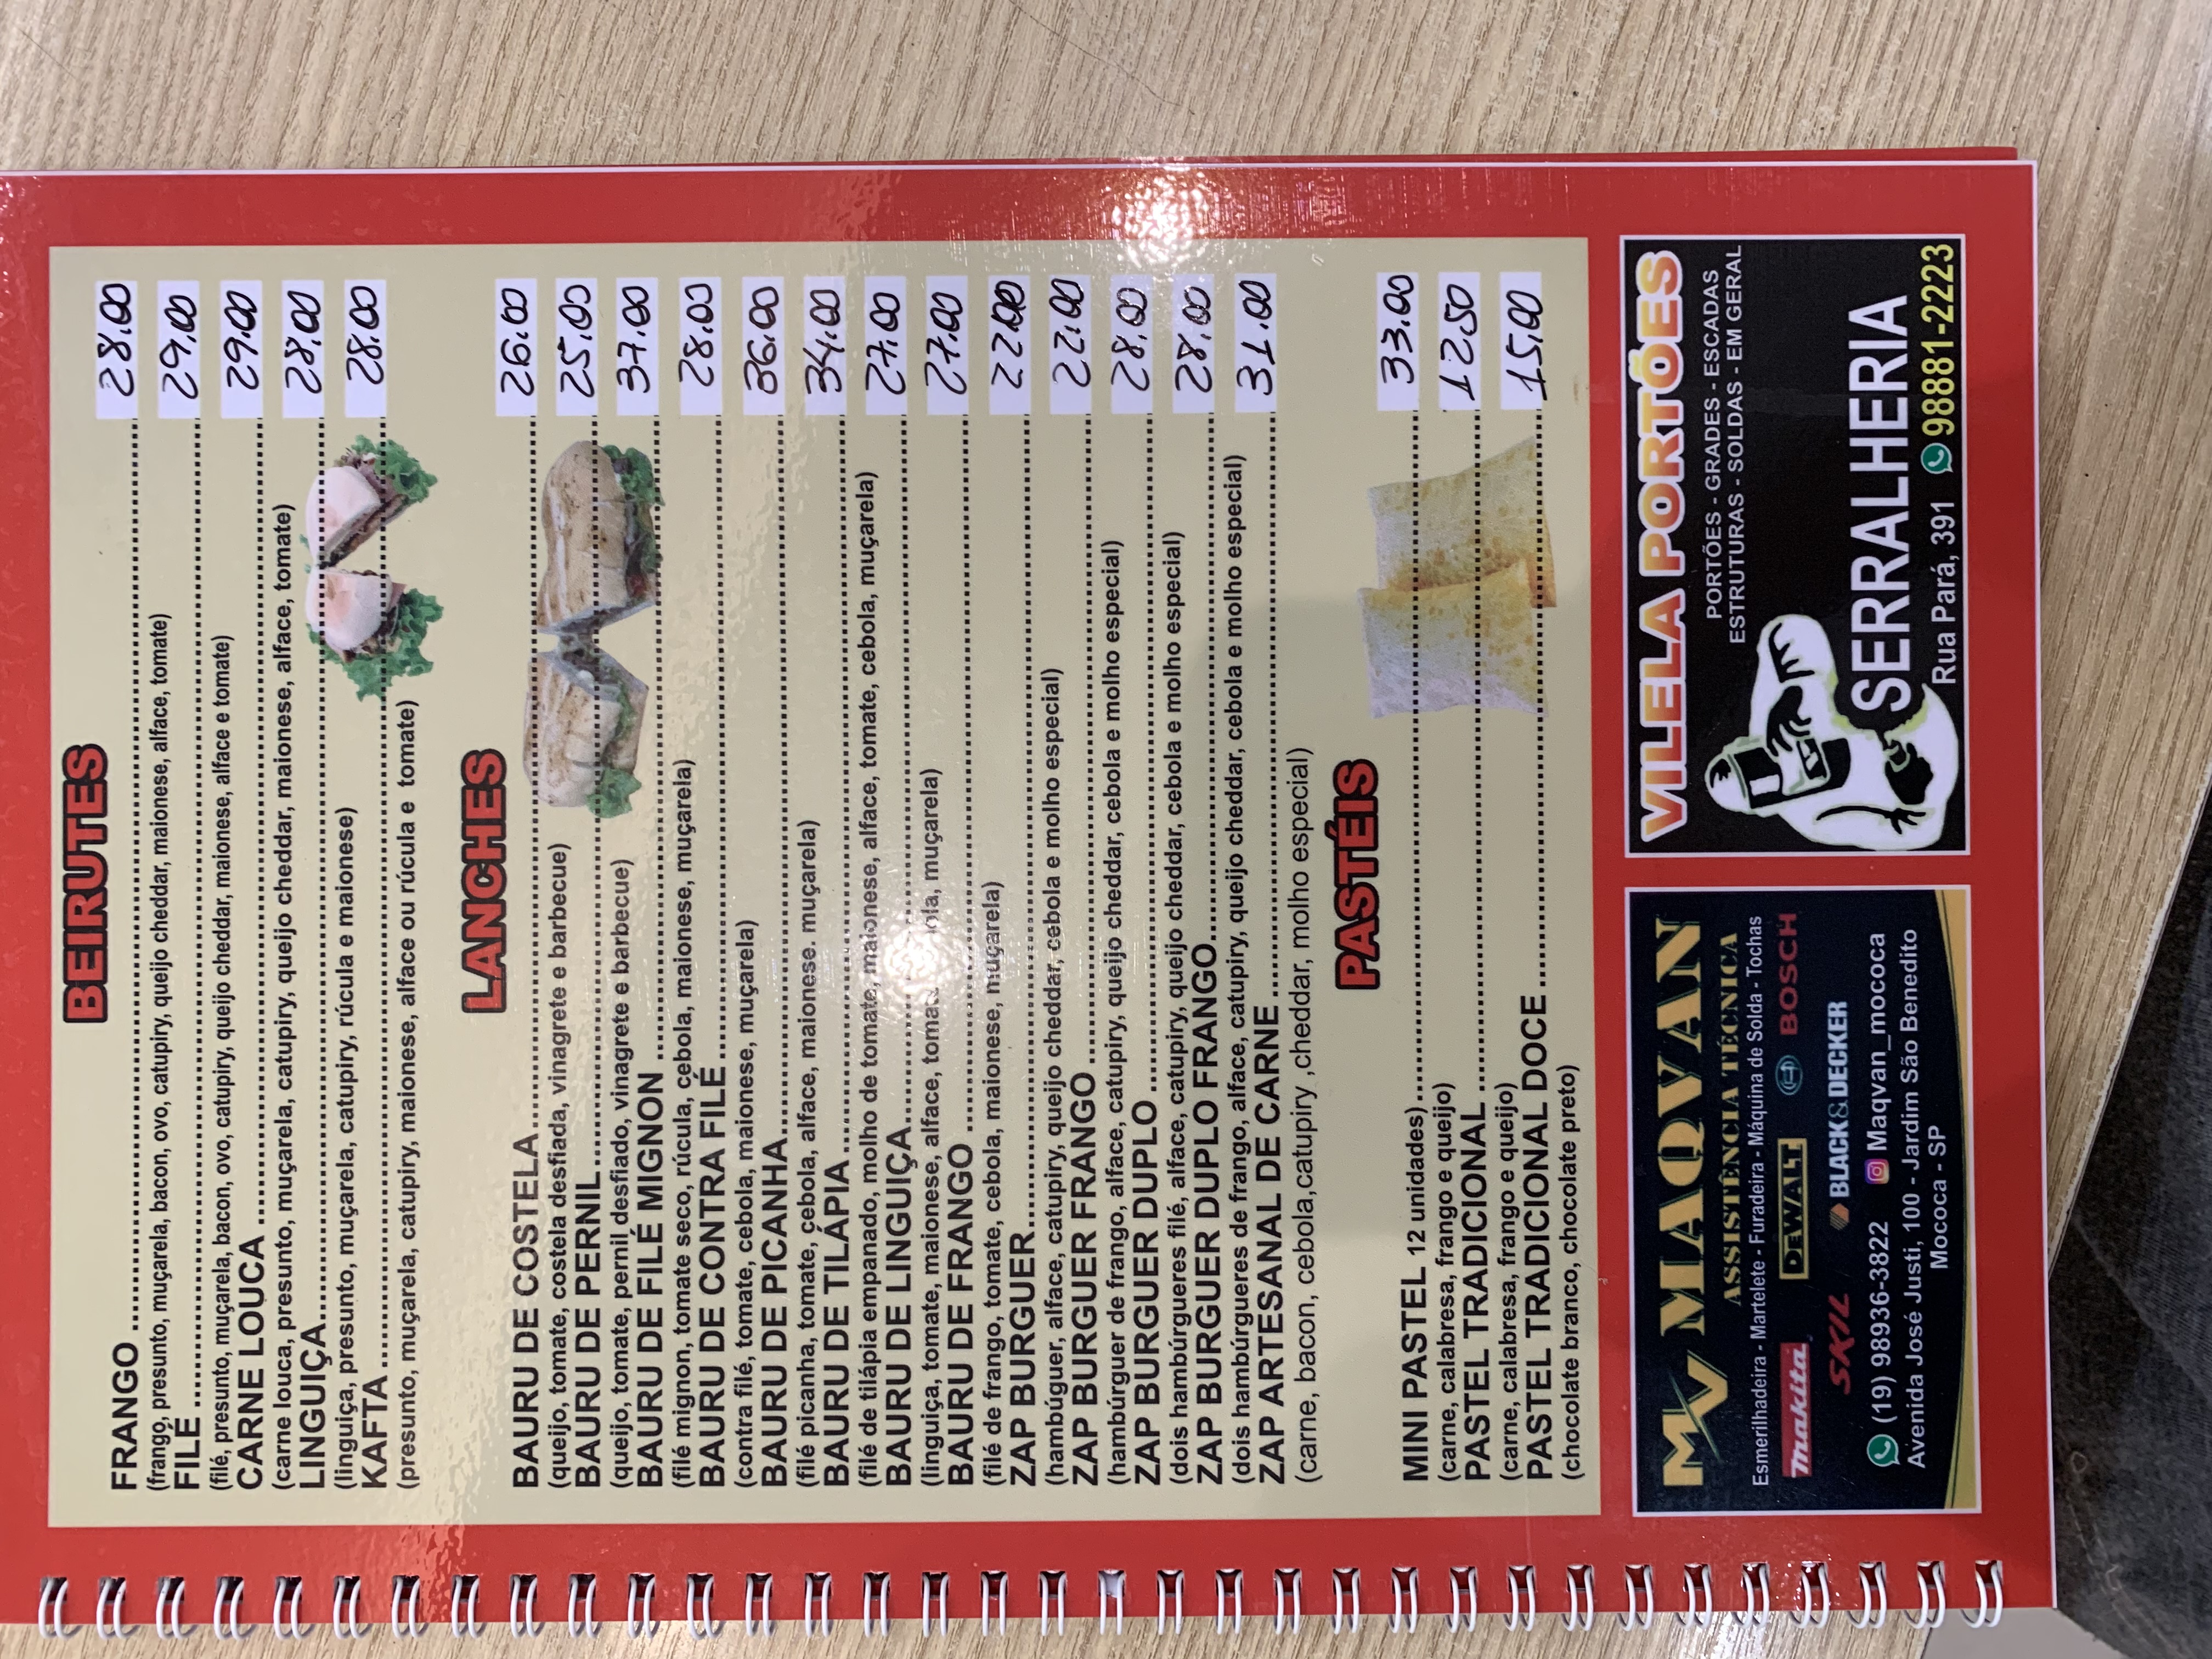 BEIRUTES
FRANGO ........ 28.00
(frango, presunto, muçarela, bacon, ovo, catupiry, queijo cheddar, maionese, alface, tomate)
FILÉ ........ 29.00
(filé, presunto, muçarela, bacon, ovo, catupiry, queijo cheddar, maionese, alface e tomate)
CARNE LOUCA ........ 29.00
(carne louca, presunto, muçarela, catupiry, queijo cheddar, maionese, alface, tomate)
LINGUIÇA........ 28.00
(linguiça, presunto, muçarela, catupiry, rúcula e maionese)
KAFTA ........ 28.00
(presunto, muçarela, catupiry, maionese, alface ou rúcula e tomate)
LANCHES
BAURU DE COSTELA........ 26.00
(queijo, tomate, costela desfiada, vinagrete e barbecue)
BAURU DE PERNIL........ 25.00
(queijo, tomate, pernil desfiado, vinagrete e barbecue)
BAURU DE FILÉ MIGNON ........ 37.00
(filé mignon, tomate seco, rúcula, cebola, maionese, muçarela)
BAURU DE CONTRA FILÉ ........ 28.00
(contra filé, tomate, cebola, maionese, muçarela)
BAURU DE PICANHA........ 36.00
(filé picanha, tomate, cebola, alface, maionese. muçarela)
BAURU DE TILÁPIA ........ 34.00
(filé de tilápia empanado, molho de tomate, maionese, alface, tomate, cebola, muçarela)
BAURU DE LINGUIÇA........ 27.00
(linguiça, tomate, maionese, alface, muçarela)
BAURU DE FRANGO ........ 27.00
(filé de frango, tomate, cebola, maionese, muçarela)
ZAP BURGUER........ 22.00
(hambúguer, alface, catupiry, queijo cheddar, cebola e molho especial)
ZAP BURGUER FRANGO ........ 22.00
(hambúrguer de frango, alface, catupiry, queijo cheddar, cebola e molho especial)
ZAP BURGUER DUPLO ........ 28.00
(dois hambúrgueres filé, alface, catupiry, queijo cheddar, cebola e molho especial)
ZAP BURGUER DUPLO FRANGO........ 28.00
(dois hambúrgueres de frango, alface, catupiry, queijo cheddar, cebola e molho especial)
ZAP ARTESANAL DE CARNE ........ 31.00
(carne, bacon, cebola,catupiry ,cheddar, molho especial)
PASTÉIS
MINI PASTEL 12 unidades)........ 33.00
(carne, calabresa, frango e queijo)
PASTEL TRADICIONAL ........ 12,50
(carne, calabresa, frango e queijo)
PASTEL TRADICIONAL DOCE ........ 15,00
(chocolate branco, chocolate preto)
MV MAQVAN
ASSISTÊNCIA TÉCNICA
Esmerilhadeira - Martelete - Furadeira - Máquina de Solda - Tochas
makita DEWALT BOSCH
SKIL BLACK&DECKER
(19) 98936-3822 Maqvan_mococa
Avenida José Justi, 100 - Jardim São Benedito
Mococa - SP
VILELA PORTÕES
PORTÕES - GRADES - ESCADAS
ESTRUTURAS - SOLDAS - EM GERAL
SERRALHERIA
Rua Pará, 391 98881-2223